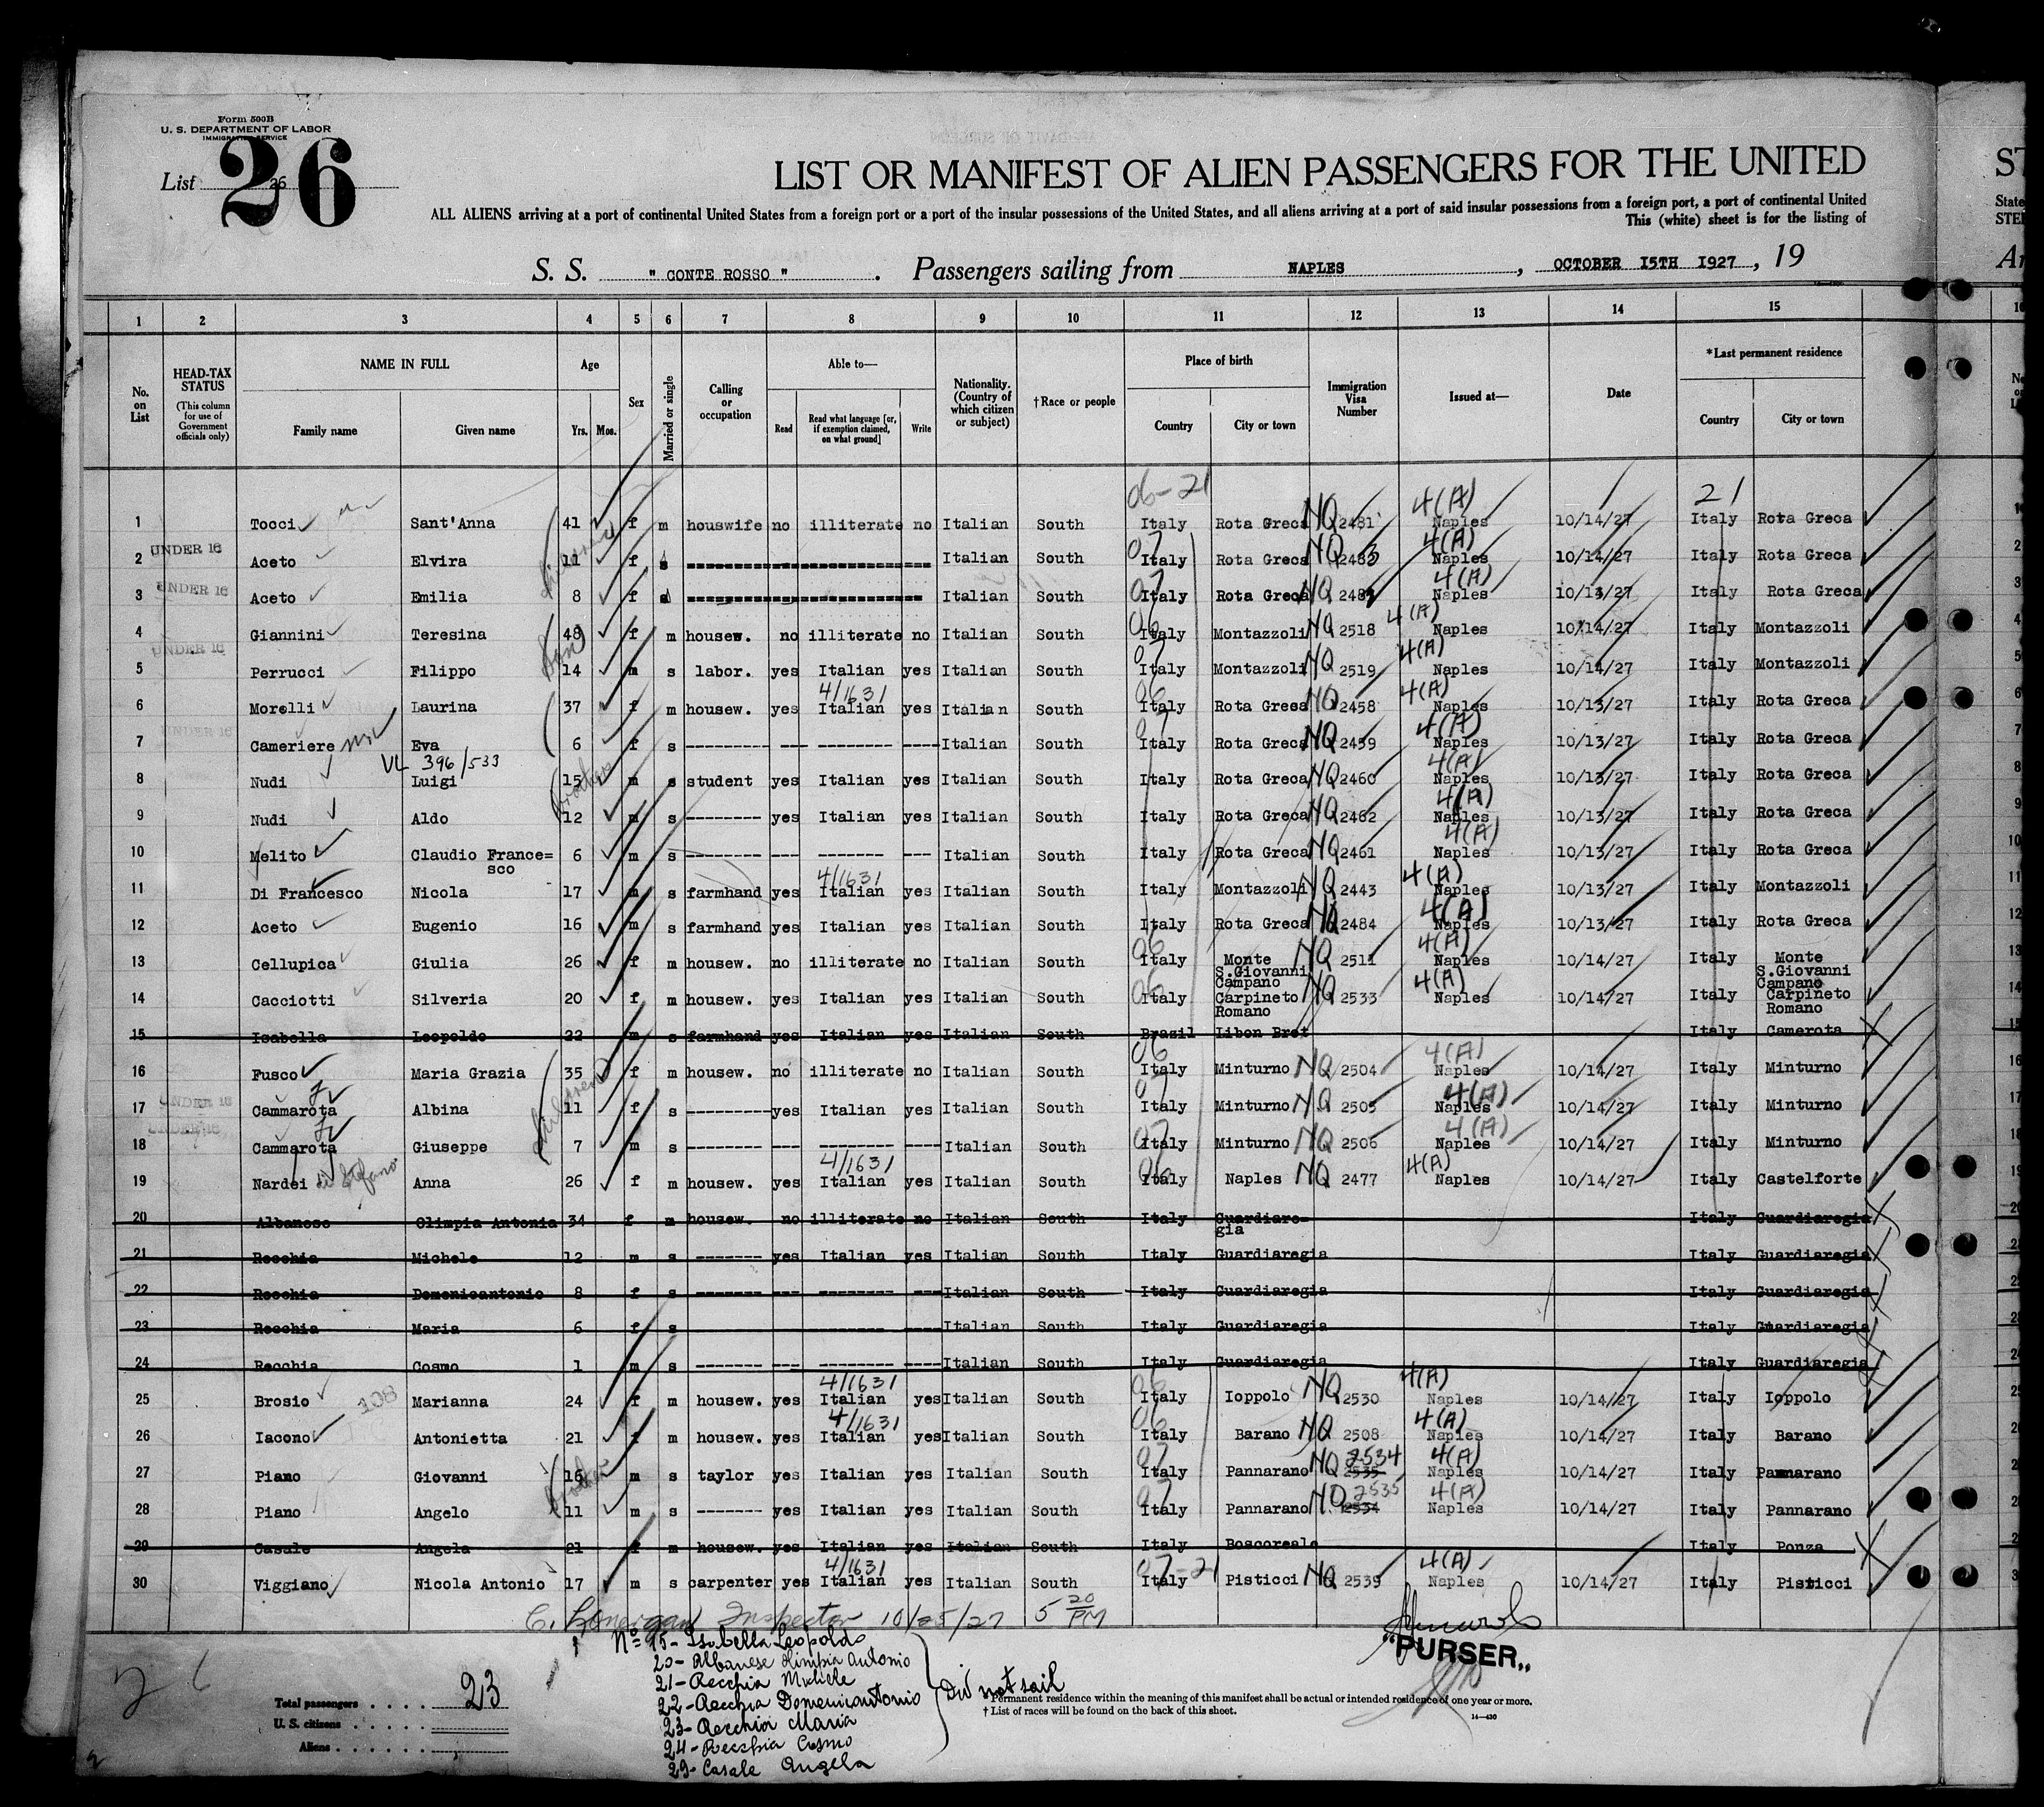 Form 500B
U. S. DEPARTMENT OF LABOR
IMMIGRATION SERVICE
List 26
26
LIST OR MANIFEST OF ALIEN PASSENGERS FOR THE UNITED
ST
ALL ALIENS arriving at a port of continental United States from a foreign port or a port of the insular possessions of the United States, and all aliens arriving at a port of said insular possessions from a foreign port, a port of continental United
State
This (white) sheet is for the listing of
STE
S. S. " CONTE ROSSO " . Passengers sailing from NAPLES , OCTOBER 15TH 1927 , 19
1 2 3 4 5 6 7 8 9 10 11 12 13 14 15
No. on List
HEAD-TAX STATUS (This column for use of Government officials only)
NAME IN FULL Family name Given name
Age Yrs. Mos.
Sex
Married or single
Calling or occupation
Able to— Read Read what language [or, if exemption claimed, on what ground] Write
Nationality. (Country of which citizen or subject)
†Race or people
Place of birth Country City or town
Immigration Visa Number
Issued at—
Date
*Last permanent residence Country City or town
06-21 4(A) 21
1 Tocci Sant'Anna 41 f m houswife no illiterate no Italian South Italy Rota Greca NQ 2481 Naples 10/14/27 Italy Rota Greca
UNDER 16 07 4(A)
2 Aceto Elvira 11 f s Italian South Italy Rota Greca NQ 2483 Naples 10/14/27 Italy Rota Greca
UNDER 16 07 4(A)
3 Aceto Emilia 8 f s Italian South Italy Rota Greca NQ Naples 10/13/27 Italy Rota Greca
06 4(A)
4 Giannini Teresina 48 f m housew. no illiterate no Italian South Italy Montazzoli NQ 2518 Naples 10/14/27 Italy Montazzoli
UNDER 16 son 07 4(A)
5 Perrucci Filippo 14 m s labor. yes Italian yes Italian South Italy Montazzoli NQ 2519 Naples 10/14/27 Italy Montazzoli
4/1631 06 4(A)
6 Morelli Laurina 37 f m housew. yes Italian yes Italian South Italy Rota Greca NQ 2458 Naples 10/13/27 Italy Rota Greca
UNDER 16 07 4(A)
7 Cameriere Eva 6 f s -------- --- -------- ---- Italian South Italy Rota Greca NQ 2459 Naples 10/13/27 Italy Rota Greca
VL 396/533 brother 4(A)
8 Nudi Luigi 15 m s student yes Italian yes Italian South Italy Rota Greca NQ 2460 Naples 10/13/27 Italy Rota Greca
4(A)
9 Nudi Aldo 12 m s -------- yes Italian yes Italian South Italy Rota Greca NQ 2462 Naples 10/13/27 Italy Rota Greca
4(A)
10 Melito Claudio France= sco 6 m s -------- --- ------- --- Italian South Italy Rota Greca NQ 2461 Naples 10/13/27 Italy Rota Greca
4/1631 4(A)
11 Di Francesco Nicola 17 m s farmhand yes Italian yes Italian South Italy Montazzoli NQ 2443 Naples 10/13/27 Italy Montazzoli
4(A)
12 Aceto Eugenio 16 m s farmhand yes Italian yes Italian South Italy Rota Greca NQ 2484 Naples 10/13/27 Italy Rota Greca
06 4(A)
13 Cellupica Giulia 26 f m housew. no illiterate no Italian South Italy Monte S.Giovanni Campano NQ 2511 Naples 10/14/27 Italy Monte S.Giovanni Campano
06 4(A)
14 Cacciotti Silveria 20 f m housew. yes Italian yes Italian South Italy Carpineto Romano NQ 2533 Naples 10/14/27 Italy Carpineto Romano
15 Isabella Leopoldo 22 m s farmhand yes Italian yes Italian South Brazil Italy Camerota
06 4(A)
16 Fusco Maria Grazia 35 f m housew. no illiterate no Italian South Italy Minturno NQ 2504 Naples 10/14/27 Italy Minturno
UNDER 16 children 07 4(A)
17 Cammarota Albina 11 f s --------- yes Italian yes Italian South Italy Minturno NQ 2505 Naples 10/14/27 Italy Minturno
UNDER 16 07 4(A)
18 Cammarota Giuseppe 7 m s -------- --- -------- ---- Italian South Italy Minturno NQ 2506 Naples 10/14/27 Italy Minturno
4/1631 06 4(A)
19 Nardei di Stefano Anna 26 f m housew. yes Italian yes Italian South Italy Naples NQ 2477 Naples 10/14/27 Italy Castelforte
20 Albanese Olimpia Antonia 34 f m housew. no illiterate no Italian South Italy Guardiare= gia Italy Guardiaregia
21 Recchia Michele 12 m s ------- yes Italian yes Italian South Italy Guardiaregia Italy Guardiaregia
22 Recchia Domenicantonio 8 f s ------- --- -------- --- Italian South Italy Guardiaregia Italy Guardiaregia
23 Recchia Maria 6 f s Italian South Italy Guardiaregia Italy Guardiaregia
24 Recchia Cosmo 1 m s ------- --- -------- ---- Italian South Italy Guardiaregia Italy Guardiaregia
108 4/1631 06 4(A)
25 Brosio Marianna 24 f m housew. yes Italian yes Italian South Italy Ioppolo NQ 2530 Naples 10/14/27 Italy Ioppolo
4/1631 06 4(A)
26 Iacono Antonietta 21 f m housew. yes Italian yes Italian South Italy Barano NQ 2508 Naples 10/14/27 Italy Barano
07 2534 4(A)
27 Piano Giovanni 16 m s taylor yes Italian yes Italian South Italy Pannarano NQ 2535 Naples 10/14/27 Italy Pannarano
brother 07 2535 4(A)
28 Piano Angelo 11 m s ------- yes Italian yes Italian South Italy Pannarano NQ 2534 Naples 10/14/27 Italy Pannarano
29 Casale Angela 21 f m housew. yes Italian yes Italian South Italy Boscoreale Italy Ponza
4/1631 07-21 4(A)
30 Viggiano Nicola Antonio 17 m s carpenter yes Italian yes Italian South Italy Pisticci NQ 2539 Naples 10/14/27 Italy Pisticci
C. Lonergan Inspector 10/25/27 5 20 PM
"PURSER"
26
Total passengers . . . . 23
U. S. citizens . . . . .
Aliens . . . . . .
Nº 15- Isabella Leopoldo
20- Albanese Olimpia Antonio
21- Recchia Michele
22- Recchia Domenicantonio
23- Recchia Maria
24- Recchia Cosmo
29- Casale Angela
Did not sail
* Permanent residence within the meaning of this manifest shall be actual or intended residence of one year or more.
† List of races will be found on the back of this sheet.
14—430